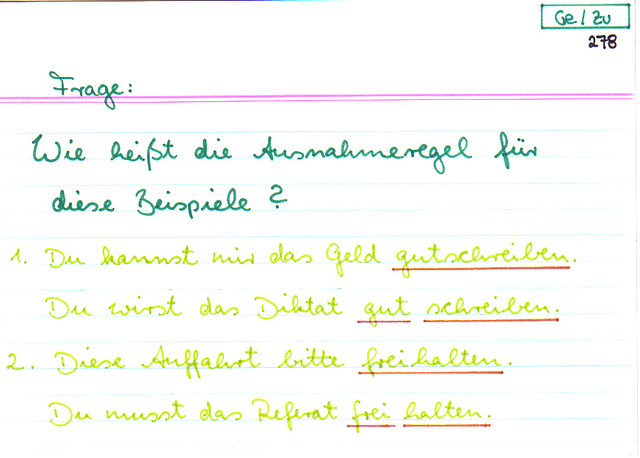 Ge / Zu
278
Frage:
Wie heißt die Ausnahmeregel für
diese Beispiele?
1. Du kannst mir das Geld gutschreiben.
Du wirst das Diktat gut schreiben.
2. Diese Auffahrt bitte freihalten.
Du musst das Referat frei halten.